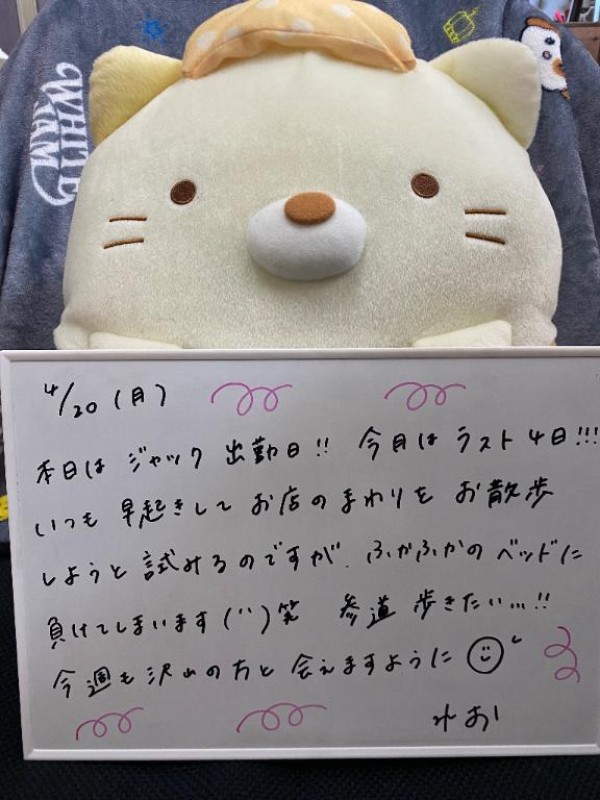 WHITE
4/20(月)
本日は ジャック 出勤日!! 今月は ラスト4日!!!
いつも 早起きして お店のまわりを お散歩
しようと 試みるのですが、ふかふかの ベッドに
負けてしまいます(´`)笑 参道 歩きたい...!!
今週も 沢山の方と 会えますように